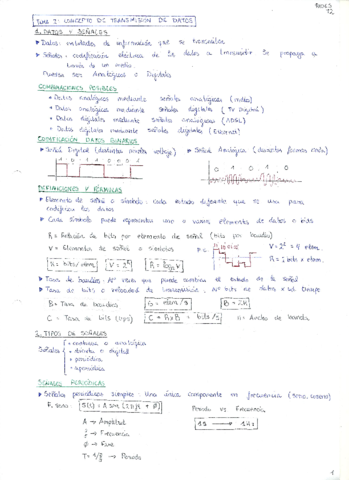 REDES
12
TEMA 2: CONCEPTO DE TRANSMISIÓN DE DATOS
1. DATOS Y SEÑALES
▸ Datos: entidades de información que se transmiten
▸ Señales: codificación eléctrica de los datos a transmitir. Se propaga a
través de un medio.
Pueden ser Analógicas o Digitales
COMBINACIONES POSIBLES
+ Datos analógicos mediante señales analógicas (radio)
+ Datos analógicos mediante señales digitales (TV Digital)
+ Datos digitales mediante señales analógicas (ADSL)
+ Datos digitales mediante señales digitales (Ethernet)
CODIFICACIÓN DATOS BINARIOS
▸ Señal Digital (distintos niveles voltaje)
▸ Señal Analógica (distintas formas onda)
DEFINICIONES Y FÓRMULAS
▸ Elemento de señal o símbolo: cada estado diferente que se usa para
codificar los datos
▸ Cada símbolo puede representar uno o varios elementos de datos o bits
R = Relación de bits por elemento de señal (bits por baudio)
V = Elementos de señal o símbolos
V = 2² = 4 elem.
R = 2 bits x elem.
R = bits/elem
V = 2ᴿ
R = log₂V
▸ Tasa de baudios: Nº veces que puede cambiar el estado de la señal
▸ Tasa de bits o velocidad de transmisión: Nº bits de datos x ud tiempo
B = Tasa de baudios
B = elem/s
B = 2H
C = Tasa de bits (bps)
C = R x B = bits/s
H = Ancho de banda
2. TIPOS DE SEÑALES
Señales
+ continua o analógica
+ discreta o digital
+ periódica
+ aperiódica
SEÑALES PERIÓDICAS
▸ Señales periódicas simples: Una única componente en frecuencia (seno, coseno)
S(t) = A sen (2πft + φ)
A → Amplitud
f → Frecuencia
φ → Fase
T = 1/f → Período
Período vs Frecuencia
1s → 1Hz
1